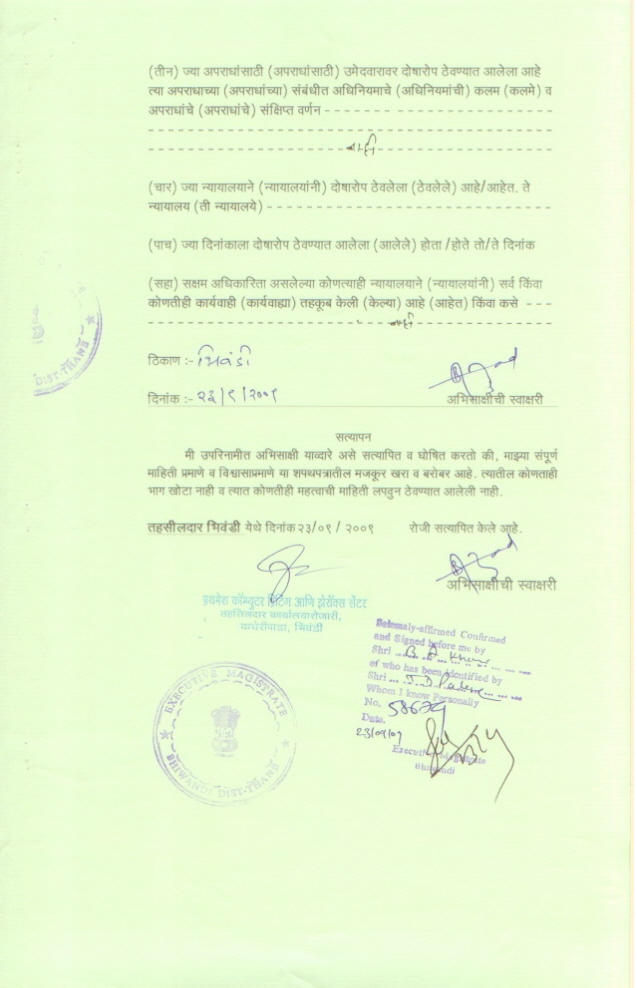 (तीन) ज्या अपराधांसाठी (अपराधांसाठी) उमेदवारावर दोषारोप ठेवण्यात आलेला आहे
त्या अपराधाच्या (अपराधांच्या) संबंधीत अधिनियमाचे (अधिनियमांची) कलम (कलमे) व
अपराधांचे (अपराधांचे) संक्षिप्त वर्णन
नाही
(चार) ज्या न्यायालयाने (न्यायालयांनी) दोषारोप ठेवलेला (ठेवलेले) आहे/आहेत. ते
न्यायालय (ती न्यायालये)
(पाच) ज्या दिनांकाला दोषारोप ठेवण्यात आलेला (आलेले) होता /होते तो/ते दिनांक
(सहा) सक्षम अधिकारिता असलेल्या कोणत्याही न्यायालयाने (न्यायालयांनी) सर्व किंवा
कोणतीही कार्यवाही (कार्यवाह्या) तहकूब केली (केल्या) आहे (आहेत) किंवा कसे
नाही
ठिकाण :- भिवंडी
दिनांक :- २३/९/२००९
अभिसाक्षीची स्वाक्षरी
सत्यापन
मी उपरिनामीत अभिसाक्षी याव्दारे असे सत्यापित व घोषित करतो की, माझ्या संपूर्ण
माहिती प्रमाणे व विश्वासाप्रमाणे या शपथपत्रातील मजकूर खरा व बरोबर आहे. त्यातील कोणताही
भाग खोटा नाही व त्यात कोणतीही महत्वाची माहिती लपवुन ठेवण्यात आलेली नाही.
तहसीलदार भिवंडी येथे दिनांक २३/०९/ २००९ रोजी सत्यापित केले आहे.
अभिसाक्षीची स्वाक्षरी
प्रथमेश कॉम्प्युटर प्रिंटिंग आणि झेरॉक्स सेंटर
तहसिलदार कार्यालयाशेजारी,
भिवंडी
Solemaly-affirmed Confirmed
and Signed before me by
Shri
of who has been identified by
Shri
Whom I know Personally
No.
Date.
23/09/09
Executive Magistrate
Bhiwandi
EXECUTIVE MAGISTRATE
BHIWANDI DIST-THANE
DIST-THANE